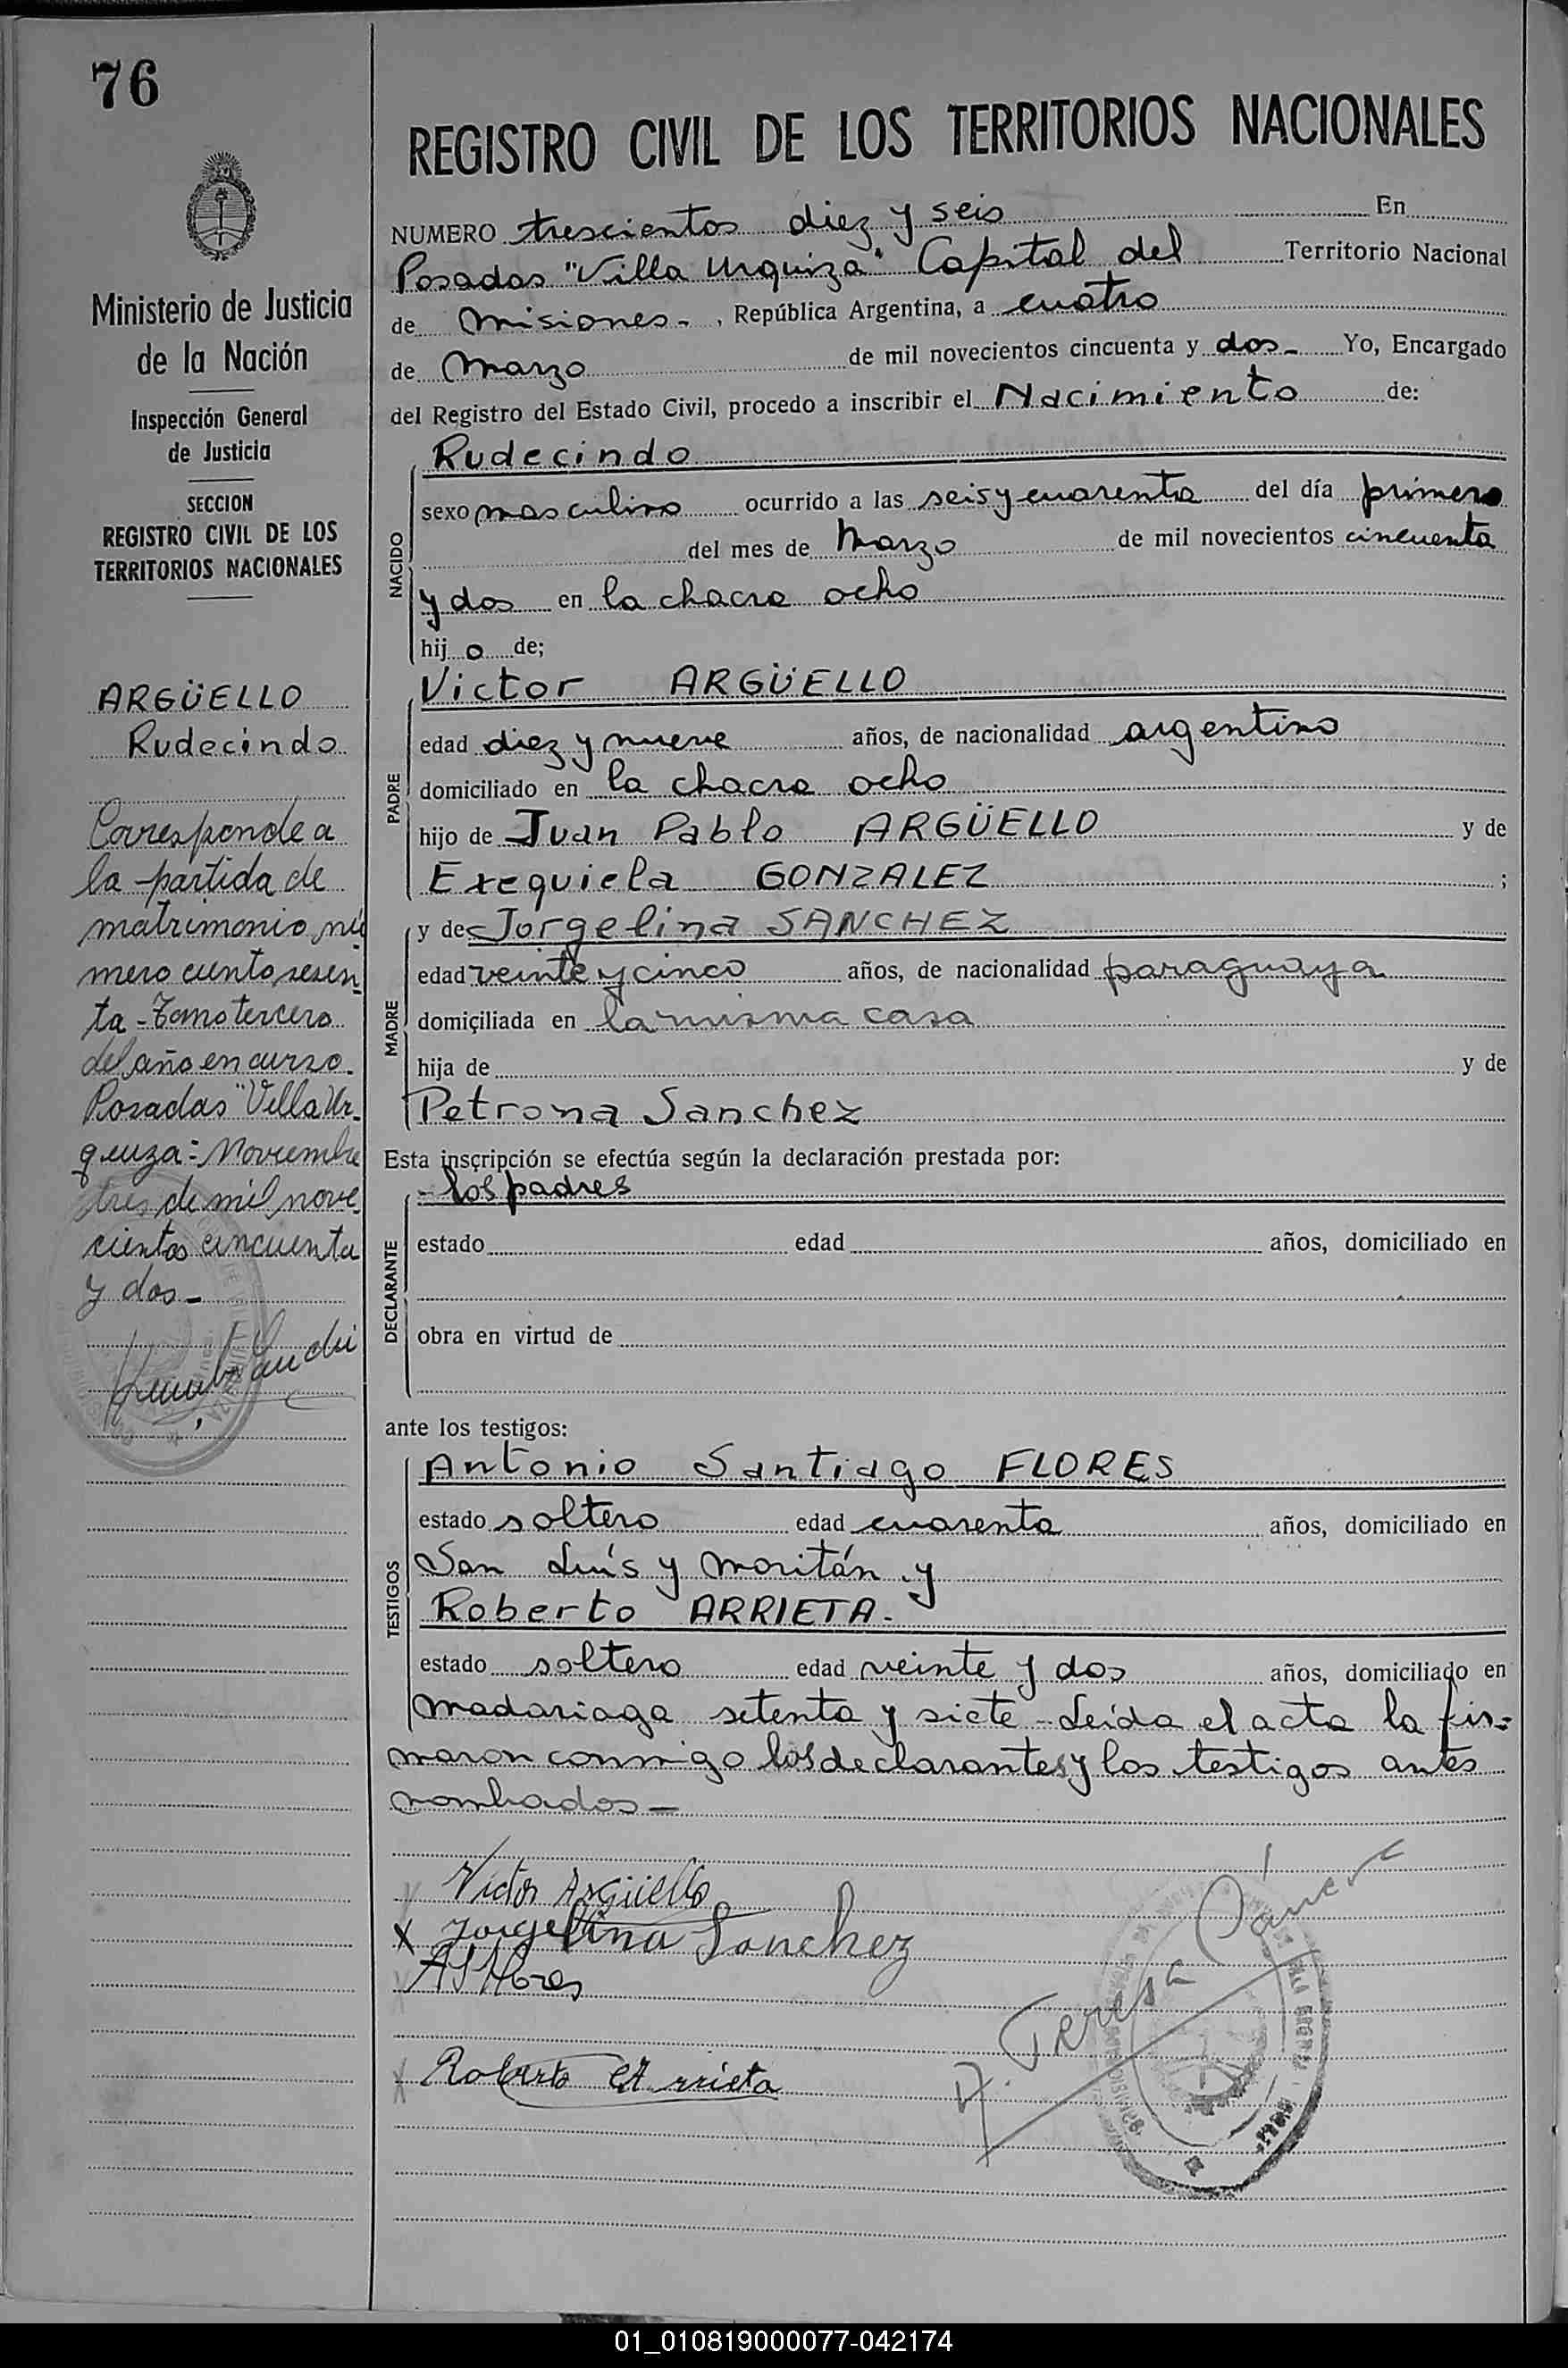 76
Ministerio de Justicia
de la Nación
Inspección General
de Justicia
SECCION
REGISTRO CIVIL DE LOS
TERRITORIOS NACIONALES
ARGÜELLO
Rudecindo
Corresponde a
la partida de
matrimonio nú
mero ciento sesen_
ta - Tomo tercero
del año en curso.
Posadas "Villa Ur_
quiza - Noviembre
tres de mil nove_
cientos cincuenta
y dos -
REGISTRO CIVIL DE LOS TERRITORIOS NACIONALES
NUMERO trescientos diez y seis En
Posadas "Villa Urquiza" Capital del Territorio Nacional
de Misiones - , República Argentina, a cuatro
de Marzo de mil novecientos cincuenta y dos - Yo, Encargado
del Registro del Estado Civil, procedo a inscribir el Nacimiento de:
NACIDO
Rudecindo
sexo masculino ocurrido a las seis y cuarenta del día primero
del mes de Marzo de mil novecientos cincuenta
y dos en la chacra ocho
hij o de;
PADRE
Victor ARGÜELLO
edad diez y nueve años, de nacionalidad argentino
domiciliado en la chacra ocho
hijo de Juan Pablo ARGÜELLO y de
Exequiela GONZALEZ ;
MADRE
y de Jorgelina SANCHEZ
edad veinte y cinco años, de nacionalidad paraguaya
domiçiliada en la misma casa
hija de y de
Petrona Sanchez
Esta insçripción se efectúa según la declaración prestada por:
DECLARANTE
- los padres
estado edad años, domiciliado en
obra en virtud de
ante los testigos:
TESTIGOS
Antonio Santiago FLORES
estado soltero edad cuarenta años, domiciliado en
San Luís y Moritán y
Roberto ARRIETA -
estado soltero edad veinte y dos años, domiciliado en
Madariaga setenta y siete - Leída el acta la fir=
maron conmigo los declarantes y los testigos antes
nombrados -
Victor Argüello
X Jorgelina Sanchez
AS Flores
X Roberto Arrieta
01_010819000077-042174